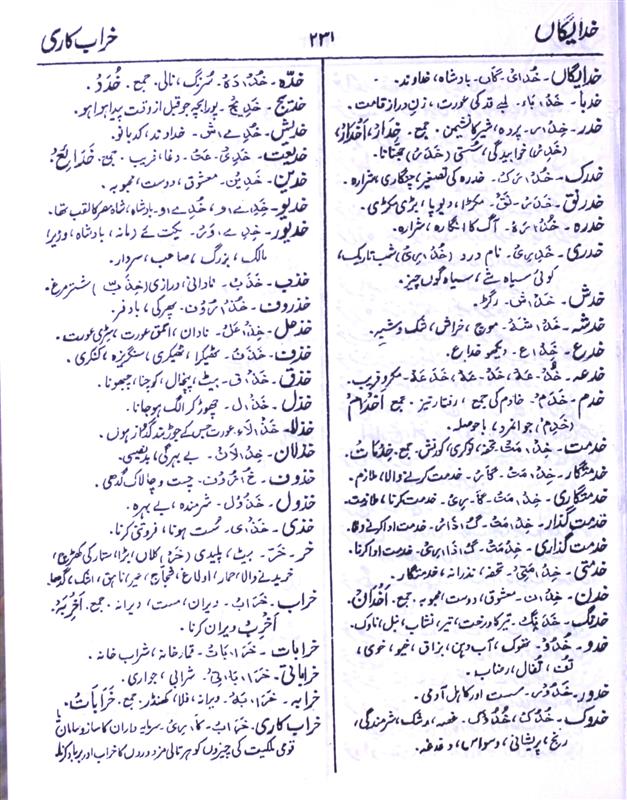 خدایگاں
۲۳۱
خراب کاری
خدایگاں۔ خُدَائ، گَاں۔ بادشاہ، خداوند۔
خدبا۔ خَدْ، بَاء۔ لمبے قد کی عورت، زنِ دراز قامت۔
خدر۔ خِدْ، س۔ پردہ، شیر کا نشیمن۔ جمع۔ خِدَارْ، اَخْدَارْ،
(خَدِس) خوابیدگی، سُستی (خَدَس) چھپانا۔
خدرک۔ خُدْ، سَ، کْ۔ خدرہ کی تصغیر، چنگاری، شرارہ۔
خدرنق۔ خَدَسْ، نَقْ۔ مکڑا، دیوپا، بڑی مکڑی۔
خدرہ۔ خُدْ، سَ، ہْ۔ آگ کا انگارہ، شرارہ۔
خدری۔ خَدَ، سِیْ۔ نام درد (خُدْ، سِیْ) شب تاریک،
کوئی سیاہ شے، سیاہ گوں چیز۔
خدش۔ خَدْ، ش۔ رگڑ۔
خدشہ۔ خَدْ، شَہْ۔ موچ، خراش، شک و شبہ۔
خدع۔ خِدْ، ع۔ دیکھو خداع۔
خدعہ۔ خُدْ، عَہْ، خَدْ، عَہْ، خَدَعَہ۔ مکر و فریب۔
خدم۔ خَدَمْ۔ خادم کی جمع، رفتار تیز۔ جمع اَخْدَامْ
(خَدِمْ)، جوانمرد، باحوصلہ۔
خدمت۔ خِدْ، مَتْ۔ تحفہ، نوکری، کورنش۔ جمع۔ خِدْمَاتْ۔
خدمتگار۔ خِدْ، مَتْ، گَاس۔ خدمت کرنے والا، ملازم۔
خدمتگاری۔ خِدْ، مَتْ، گَا، سِیْ۔ خدمت کرنا، ملازمت۔
خدمت گذار۔ خِدْ، مَتْ، گُ، ذَاس۔ خدمت ادا کرنے والا۔
خدمت گذاری۔ خِدْ، مَتْ، گُ، ذَا، سِیْ۔ خدمت ادا کرنا۔
خدمتی۔ خِدْ، مَتِیْ۔ تحفہ، نذرانہ، خدمتگار۔
خدن۔ خِدْ، ن۔ معشوق، دوست، محبوبہ۔ جمع۔ اَخْدَانْ۔
خدنگ۔ خَدَ، نْگ۔ تیر کا درخت، تیر، نشاب، نبل، ناوک۔
خدو۔ خُدُوْ۔ تھوک، آب دہن، بزاق، خیو، خوی،
تُف، تُفال، رضاب۔
خدور۔ خَدُوْس۔ سست اور کاہل آدمی۔
خدوک۔ خَدُوْکْ، خُدُوْکْ۔ غصہ، رشک، شرمندگی،
رنج، پریشانی، وسواس، دغدغہ۔
خدّہ۔ خُدْ، دَہْ۔ سُرنگ، نالی۔ جمع۔ خُدَدْ۔
خدیج۔ خَدِیْج۔ پورا بچہ جو قبل از وقت پیدا ہوا ہو۔
خدیش۔ خَدِے، ش۔ خداوند، کدبانو۔
خدیعت۔ خَدِیْ، عَتْ۔ دغا، فریب۔ جمع۔ خَدَائِعْ۔
خدین۔ خَدِیْن۔ معشوق، دوست، محبوبہ۔
خدیو۔ خَدِے، و، خُدِے، و۔ بادشاہ، شاہ مصر کا لقب تھا۔
خدیور۔ خَدِے، وَسْ۔ یکتائے زمانہ، بادشاہ، وزیر،
مالک، بزرگ، صاحب، سردار۔
خذب۔ خَذَب۔ نادانی، درازی (خِذَبّ) شتر مرغ۔
خذروف۔ خُذْ، سُوْف۔ پھرکی، بادفر۔
خذعل۔ خِذْ، عَلْ۔ نادان، احمق عورت، سڑی عورت۔
خذف۔ خَذَفْ۔ ٹھیکرا، ٹھیکری، سنگریزہ، کنکری۔
خذق۔ خَذْ، ق۔ بیٹ، پنچال، کوچنا، چبھونا۔
خذل۔ خَذْ، ل۔ چھوڑ کر الگ ہو جانا۔
خذلا۔ خَذْ، لَاء۔ عورت جس کے جوڑ بند گداز ہوں۔
خذلان۔ خِذْ، لَانْ۔ بے بہرگی، بدنصیبی۔
خذوف۔ خَ، ذُوْف۔ چست و چالاک گدھی۔
خذول۔ خَذُوْل۔ شرمندہ، بے بہرہ۔
خذی۔ خَذْ، ی۔ سُست ہونا، فروتنی کرنا۔
خر۔ خَرّ۔ بیٹ، پلیدی (خَرْ) کلاں، بڑا، ستار کی کھڑچ،
خریدنے والا، حمار، اولاغ،
خراب۔ خَرَابْ۔ ویران، مست، دیرانہ۔ جمع۔ اَخْرِبَہْ۔
اَخْرِبْ ویران کرنا۔
خرابات۔ خَرَا، بَاتْ۔ قمار خانہ، شراب خانہ۔
خراباتی۔ خَرَا، بَا، تِیْ۔ شرابی، جواری۔
خرابہ۔ خَرَا، بَہْ۔ ویرانہ، فلاۃ، کھنڈر۔ جمع۔ خَرَابَاتْ۔
خراب کاری۔ خَرَابْ، کَا، سِیْ۔ سرمایہ داران کا ساز و سامان
قومی ملکیت کی چیزوں کو ہرتالی مزدوروں کا خراب اور برباد کرنا۔